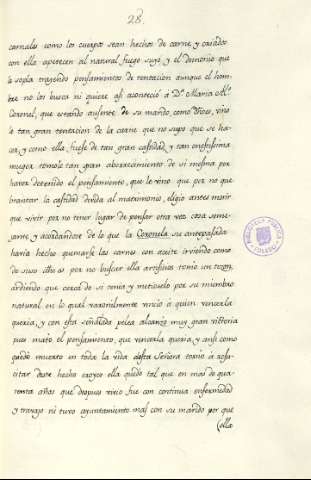 28.
carnales como los cuerpos sean hechos de carne y casados
con ella apetecen al natural fuego suyo y el demonio que
la sopla trayendo pensamientos de tentacion aunque el hom-
bre no los busca ni quiere asi acontecio á Dª Maria Alº
Coronel, que estando ausente de su marido como vino
le tan gran tentacion de la carne que no supo que se ha-
cer, y como ella fuese de tan gran castidad, y tan onestissima
muger tomole tan gran aborrecimiento de si mesma por
haver detenido el pensamiento, que le vino que por no que
brantar la castidad devida al matrimonio, eligio antes morir
que vivir por no tener lugar de pensar otra vez cosa seme-
jante y acordandose de lo que la Coronela su antepasada
havia hecho quemarse las carnes con aceite irviendo como
de suso por no buscar ella artificios tomó un tizon
ardiendo que cerca de si tenia y metioselo por su miembro
natural, en lo qual varonilmente vencio á quien vencerla
queria, y con esta señalada pelea alcanzo muy gran victoria
pues mató el pensamiento, que vencerla queria, y ansi como
quedó muerto en toda la vida desta Señora tornó á resu-
citar deste hecho creyo ella quedó tal que en mas de qua-
renta años que despues vivio fue con continua enfermedad
y trabajo ni tuvo ayuntamiento mas con su marido por que
(ella
BIBLIOTECA PUBLICA
TOLEDO